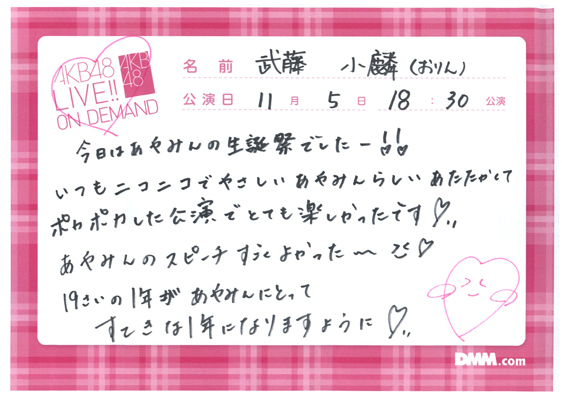 AKB48
LIVE!!
ON DEMAND
AKB
48
名前 武藤 小麟(おりん)
公演日 11月5日 18:30公演
今日はあやみんの生誕祭でしたー!!
いつもニコニコでやさしいあやみんらしいあたたかくて
ポカポカした公演でとても楽しかったです♡
あやみんのスピーチすごくよかった〜♡
19さいの1年があやみんにとって
すてきな1年になりますように♡
DMM.com